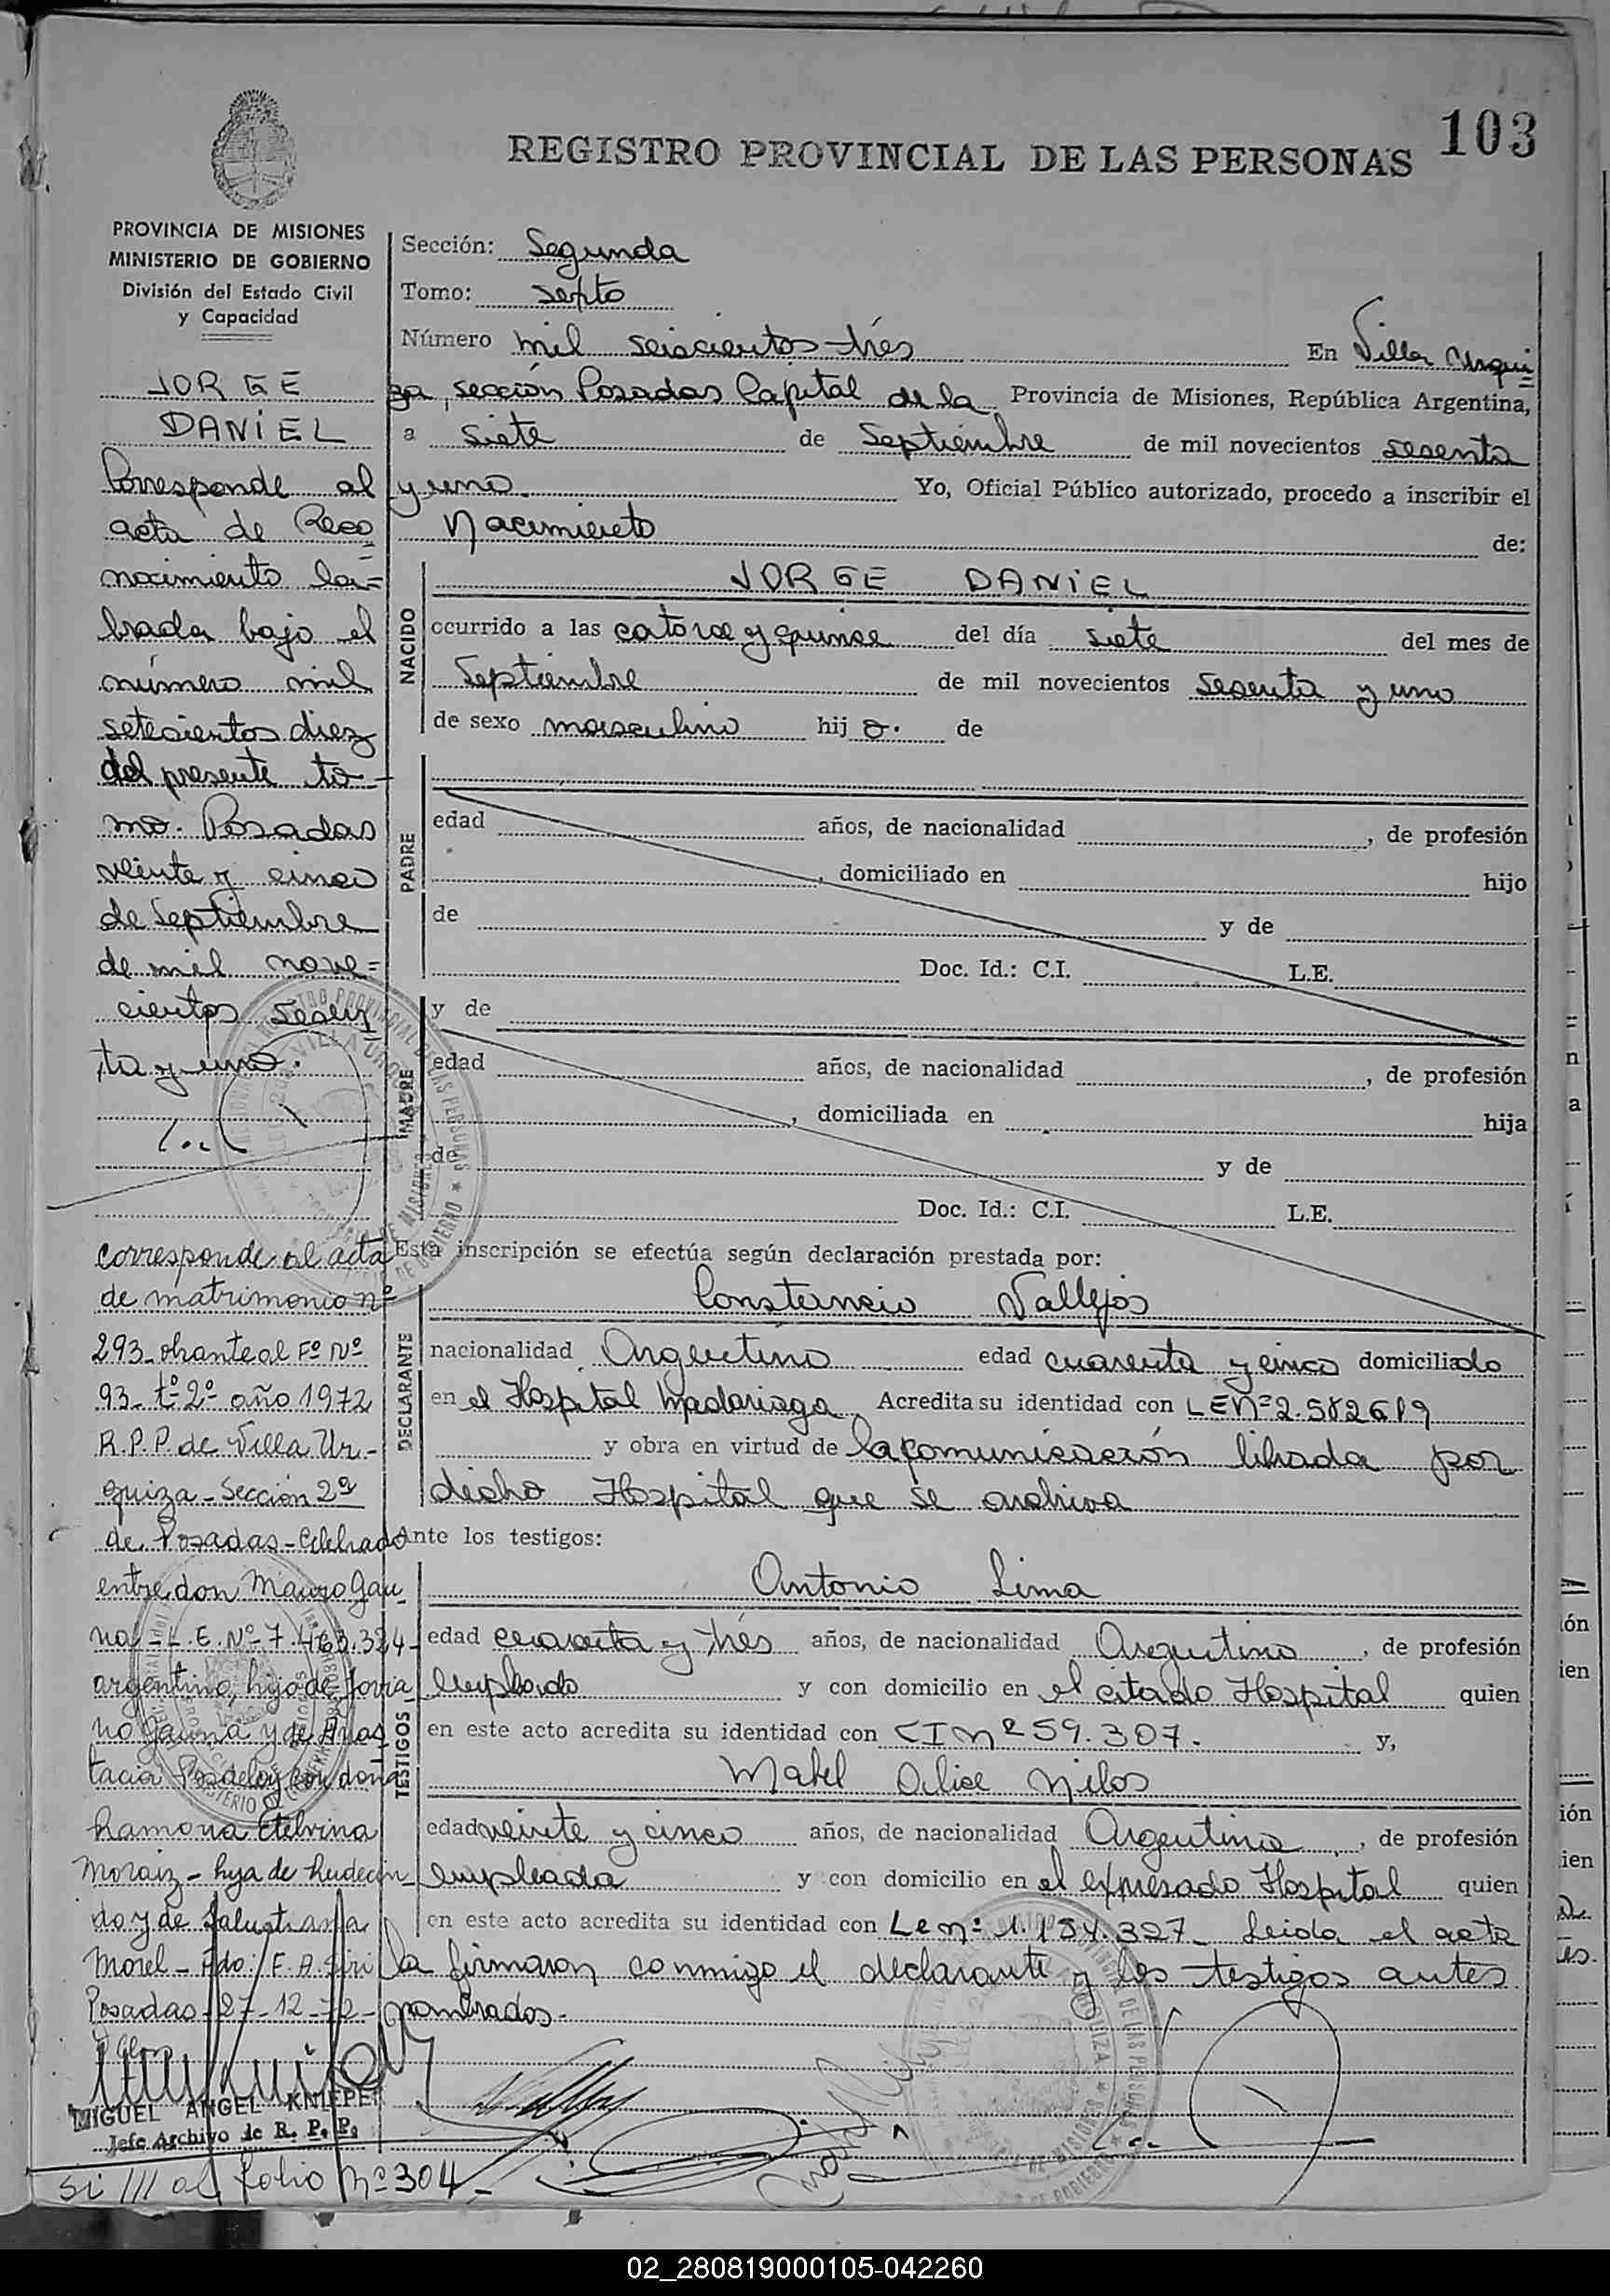 103
REGISTRO PROVINCIAL DE LAS PERSONAS
PROVINCIA DE MISIONES
MINISTERIO DE GOBIERNO
División del Estado Civil
y Capacidad
JORGE
DANIEL
Corresponde al
acta de Reco
nocimiento la=
brada bajo el
número mil
setecientos diez
del presente to-
mo. Posadas
veinte y cinco
de Septiembre
de mil nove=
cientos sesen
ta y uno.
corresponde al acta
de matrimonio nº
293 obrante al Fº Nº
93 tº 2º año 1972
R.P.P. de Villa Ur-
quiza - Sección 2ª
de Posadas - Celebrado
entre don Mauro Gau
na - L.E. Nº 7.463.384 -
argentino, hijo de
no Gauna y de Anas
tacia y con doña
Ramona Etelvina
- hija de Rudecin
do y de Salustiana
Morel - Fdo: F. A.
Posadas - 27-12-72 -
MIGUEL ANGEL KNIEPER
Jefe Archivo de R. P. P.
Si /// al folio Nº 304 -
Sección: Segunda
Tomo: septo
Número mil seiscientos tres En Villa Urqui
za, sección Posadas Capital de la Provincia de Misiones, República Argentina,
a siete de Septiembre de mil novecientos sesenta
y uno. Yo, Oficial Público autorizado, procedo a inscribir el
Nacimiento de:
NACIDO
JORGE DANIEL
ocurrido a las catorce y quince del día siete del mes de
Septiembre de mil novecientos sesenta y uno
de sexo masculino hij o. de
PADRE
edad años, de nacionalidad , de profesión
, domiciliado en hijo
de y de
Doc. Id.: C.I. L.E.
MADRE
y de
edad años, de nacionalidad , de profesión
, domiciliada en hija
de y de
Doc. Id.: C.I. L.E.
Esta inscripción se efectúa según declaración prestada por:
DECLARANTE
Constancio Vallejos
nacionalidad Argentino edad cuarenta y cinco domiciliado
en el Hospital Madariaga Acredita su identidad con LE nº 2.582.619
y obra en virtud de la comunicación librada por
dicho Hospital que se archiva
Ante los testigos:
TESTIGOS
Antonio Lima
edad cuarenta y tres años, de nacionalidad Argentino, de profesión
empleado y con domicilio en el citado Hospital quien
en este acto acredita su identidad con CI nº 59.307. y,
Mabel Alice Nilos
edad veinte y cinco años, de nacionalidad Argentina, de profesión
empleada y con domicilio en el expresado Hospital quien
en este acto acredita su identidad con Le nº 1.154.327 - Leida el acta
la firmaron conmigo el declarante y los testigos antes
nombrados.-
02_280819000105-042260